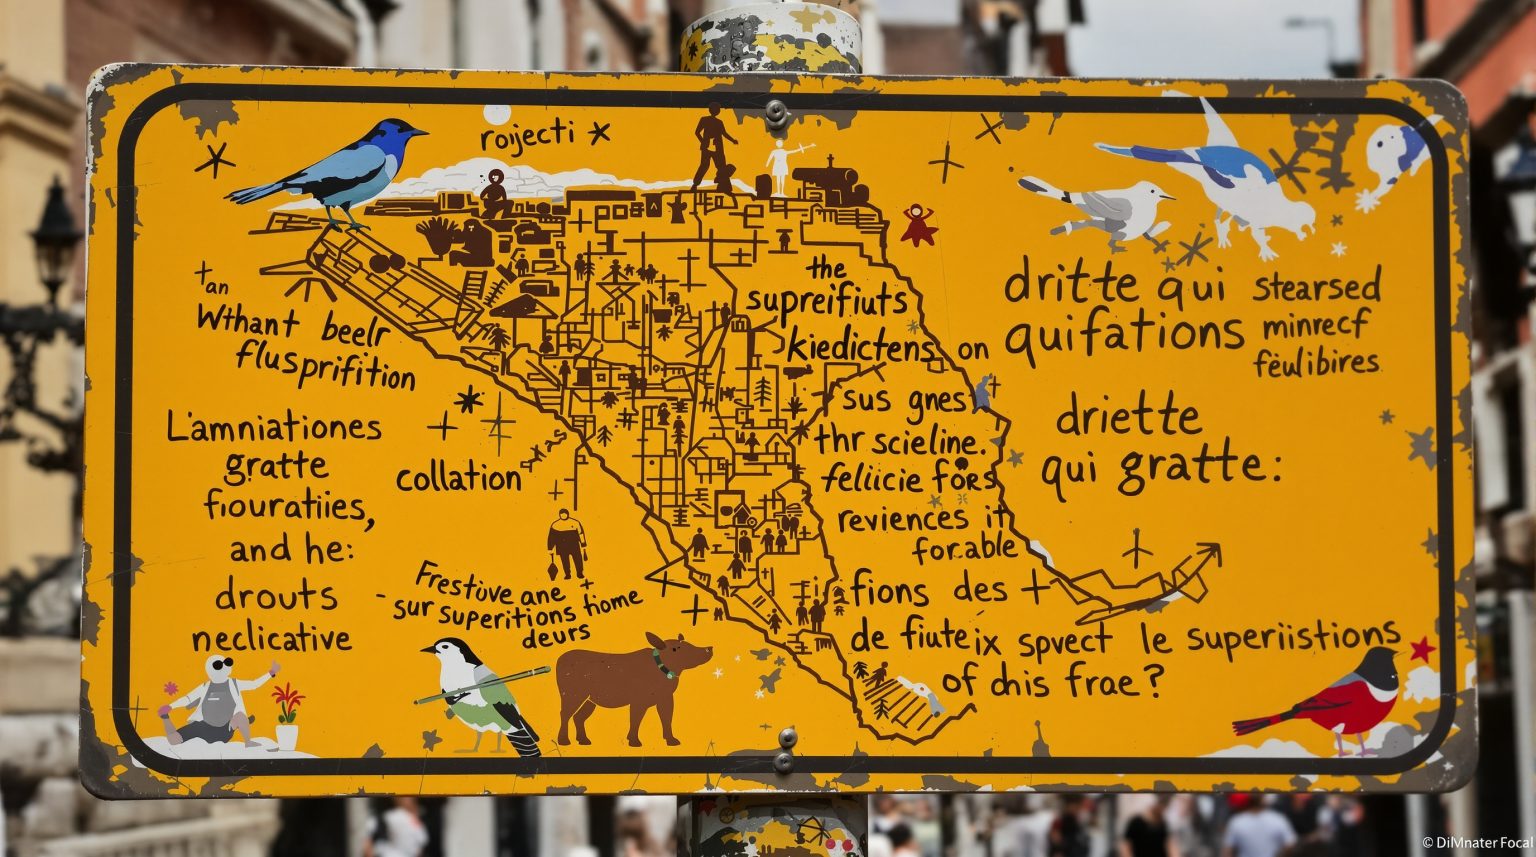 rojecti
tan
Wthant beelr
flusprifition
L'amniationes
gratte
fiouratiies,
and he:
drouts
neclicative
collation
Frestuve ane
sur superitions home
deurs
the
supreifiuts
kiedictens on
sus gnes
thr scieline.
feliicie fors
reviences it
for.able
fions des
de fiuteix spvect le superiistions
of dhis frae?
dritte qui
quifations
stearsed
minrecf
fëulibires.
driette
qui gratte:
© DiMnater Focal